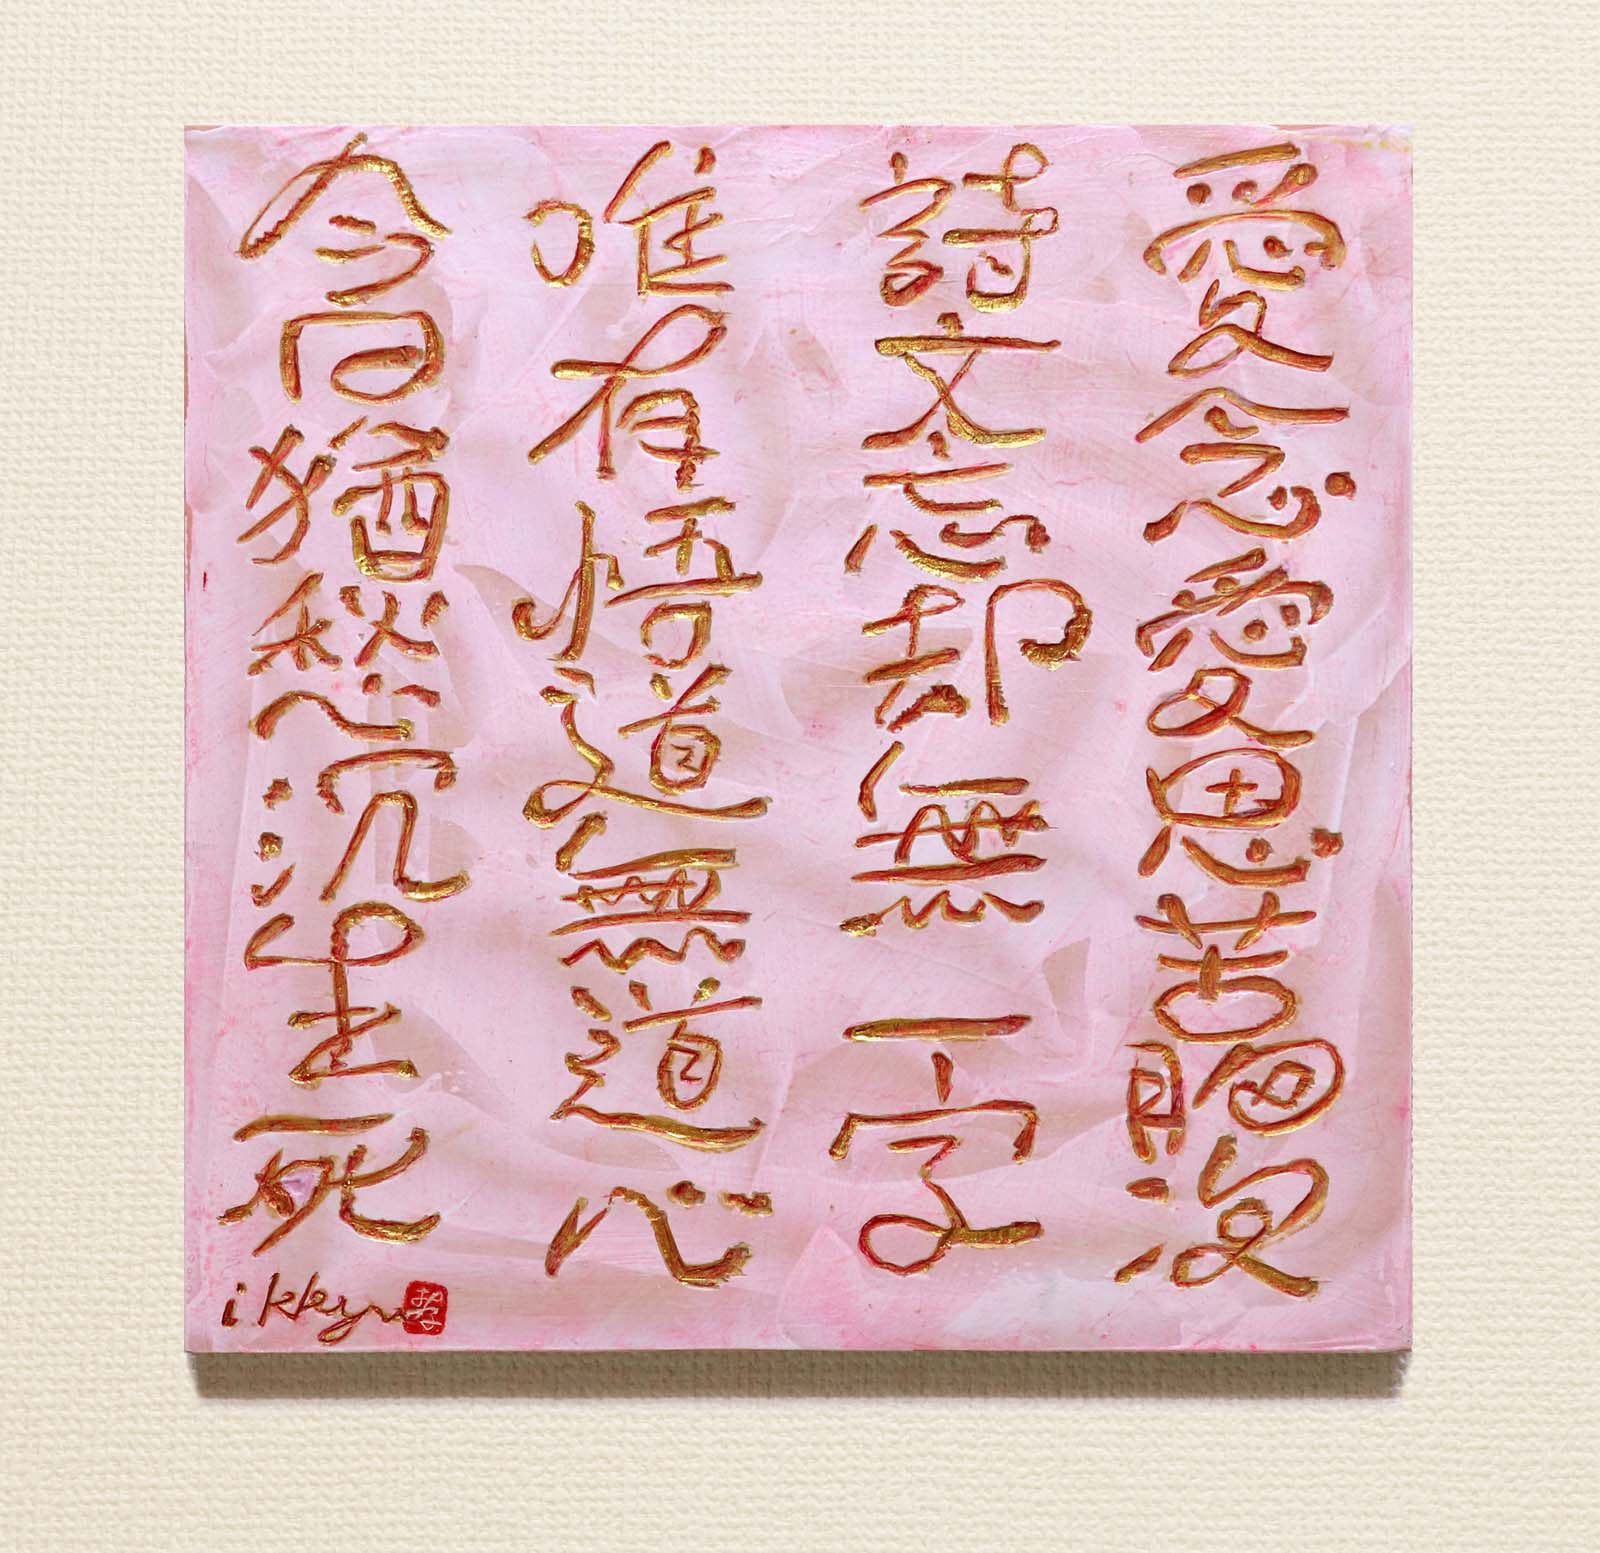 愛念愛思苦胸次
詩文忘却無一字
唯有悟道無道心
今日猶愁沉生死
ikkyu